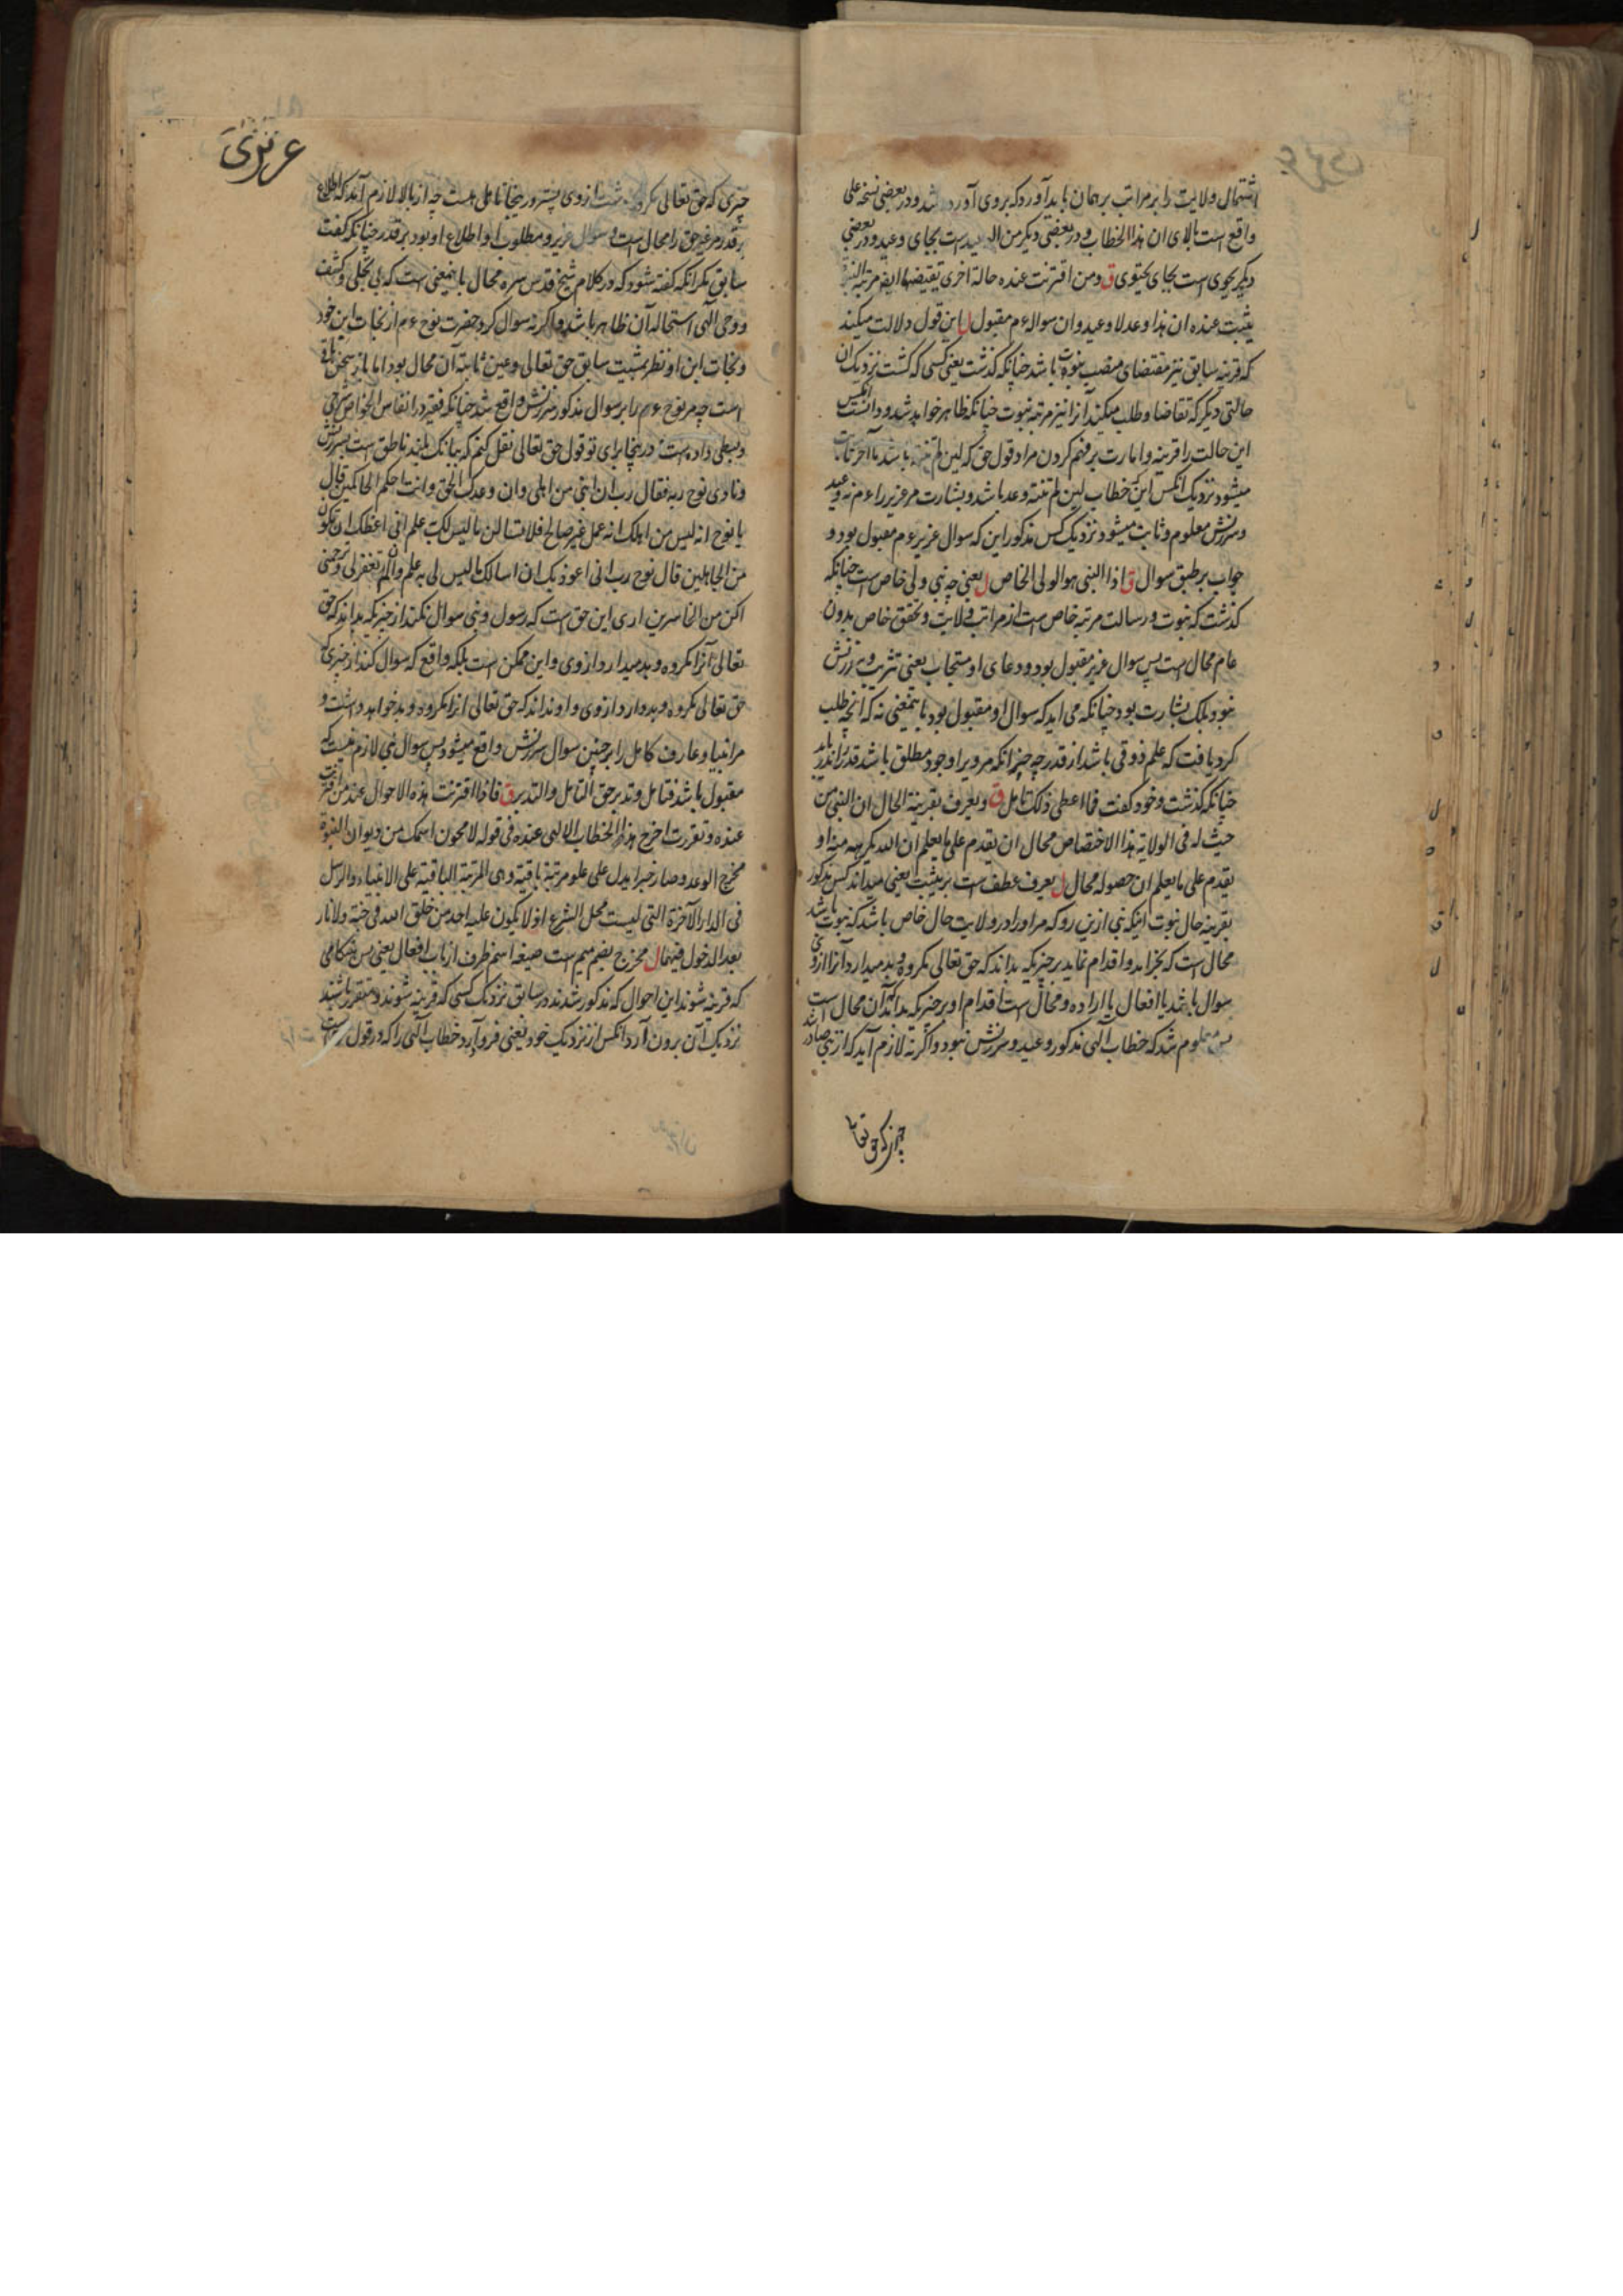 اشتمال ولایت را بر مراتب بر همان باید آورد که بروی آورده شد و در بعضی نسخه علی
واقع است بالای ان هذا الخطاب و در بعضی دیگر من الوعید است بجای وعید و در بعضی
دیگر یحوی است بجای یحتوی ق ومن اقترنت عنده حالة اخری تقتضیها ایضا مرتبة النبوة
یثبت عنده ان هذا وعد لا وعید وان سواله ءم مقبول ل این قول دلالت میکند
که قرینه سابق نیز مقتضای منصب نبوت باشد چنانکه گذشت یعنی کسی که گشت نزدیک آن
حالتی دیگر که تقاضا و طلب میکند آنرا نیز مرتبه نبوت چنانکه ظاهر خواهد شد و دانست آنکس
این حالت را قرینه و امارت بر فهم کردن مراد قول حق که لئن لم تنته باشد تا آخر ثابت
میشود نزدیک آنکس این که خطاب لئن لم تنته وعد باشد و بشارت مر عزیر را ءم نه وعید
و سرزنش معلوم و ثابت میشود نزدیک کس مذکور این که سوال عزیر ءم مقبول بود و
جواب بر طبق سوال ق اذ النبی هو الولی الخاص ل یعنی چه نبی ولی خاص است چنانکه
گذشت که نبوت و رسالت مرتبه خاص است از مراتب ولایت و تحقق خاص بدون
عام محال است پس سوال عزیر مقبول بود و دعای او مستجاب یعنی تثریب و سرزنش
نبود بلکه بشارت بود چنانکه می آید که سوال او مقبول بود باینمعنی نه که آنچه طلب
کرد یافت که علم ذوقی باشد از قدر چه جز آنکه مر ویرا وجود مطلق باشد قدر را نداند
چنانکه گذشت و خود گفت فما اعطی ذلک تامل ق ویعرف بقرینة الحال ان النبی من
حیث له فی الولایة هذا الاختصاص محال ان یقدم علی ما یعلم ان الله یکرهه منه او
یقدم علی ما یعلم ان حصوله محال ل یعرف عطف است بر یثبت یعنی میداند کس مذکور
بقرینه حال نبوت اینکه نبی ازین رو که مر او را در ولایت حال خاص باشد که نبوت باشد
محال است که بخراهد و اقدام نماید بر چیزیکه بداند که حق تعالی مکروه و بد میدارد آنرا ازوی
سوال باشد یا افعال یا اراده و محال است اقدام او بر چیزیکه بداند که آن محال است
پس معلوم شد که خطاب الهی مذکور وعید و سرزنش نبود و اگر نه لازم آید که از نبی صادر
چیزی که حق تعالی
چیزی که حق تعالی مکروه داشت ازوی پیشتر و درینجا تامل هست چه از بالا لازم آمد که اطلاع
بر قدر مر غیر حق را محال است و سوال عزیر و مطلوب او اطلاع او بود بر قدر چنانکه گفت
سابق مگر آنکه گفته شود که در کلام شیخ قدس سره محال باینمعنی است که بی تجلی و کشف
و وحی الهی استحاله آن ظاهر باشد و اگر نه سوال کرد حضرت نوح ءم از نجات ابن خود
و نجات ابن او نظر بمشیت سابق حق تعالی و عین ثابته آن محال بود اما باز سخن باقی
است چه مر نوح ءم را بر سوال مذکور سرزنش واقع شد چنانکه فقیر در انفاس الخواص شرحی
و بسطی داده است در ینجا برای تو قول حق تعالی نقل کنم که ببانگ بلند ناطق است بسرزنش
ونادی نوح ربه فقال رب ان ابنی من اهلی وان وعدک الحق وانت احکم الحاکمین قال
یا نوح انه لیس من اهلک انه عمل غیر صالح فلا تسالن ما لیس لک به علم انی اعظک ان تکون
من الجاهلین قال نوح رب انی اعوذ بک ان اسالک ما لیس لی به علم وان لم تغفر لی وترحمنی
اکن من الخاسرین اری این حق است که رسول و نبی سوال نکند از چیزیکه بداند که حق
تعالی آنرا مکروه و بد میدارد ازوی و این ممکن است بلکه واقع که سوال کند از چیزی که
حق تعالی مکروه و بد دارد ازوی و او نداند که حق تعالی آنرا مکروه و بد خواهد داشت و
مر انبیا و عارف کامل را بر چنین سوال سرزنش واقع میشود پس سوال نبی لازم نیست که
مقبول باشد فتامل وتدبر حق التامل والتدبر ق فاذا اقترنت هذه الاحوال عند من اقترنت
عنده وتقررت اخرج هذا الخطاب الالهی عنده فی قوله لامحون اسمک من دیوان النبوة
مخرج الوعد وصار خبرا یدل علی علو مرتبة باقیة وهی المرتبة الباقیة علی الانبیاء والرسل
فی الدار الآخرة التی لیست محل الشرع اذ لا یکون علیه احد من خلق الله فی جنة ولا نار
بعد الدخول فیهما ل مخرج بضم میم است صیغه اسم ظرف از باب افعال یعنی پس هنگامی
که قرینه شوند این احوال که مذکور شدند در سابق نزدیک کسی که قرینه شوند و متقرر باشند
نزدیک آن برون آرد آنکس از نزدیک خود یعنی فرود آرد خطاب الهی را که در قول